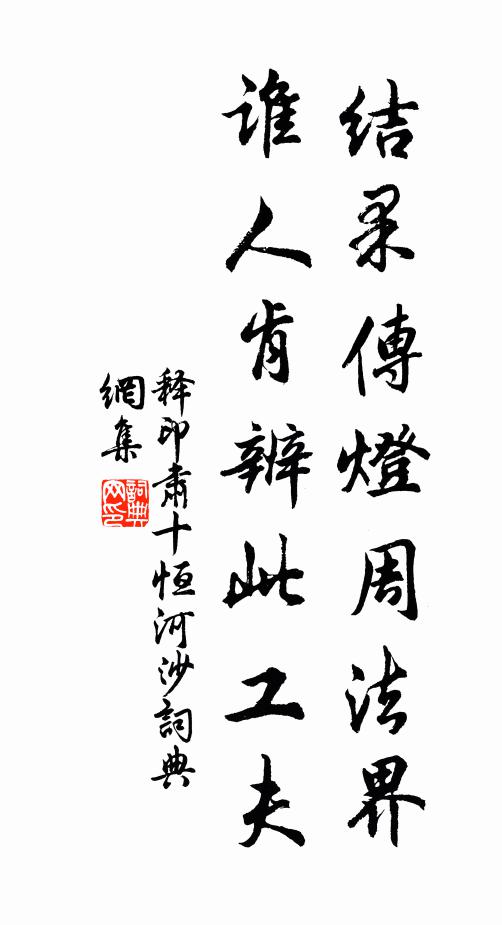 结果傳燈周法界
谁人肯辨此工夫
释印肃十恒河沙詞典
網集
詞典網印